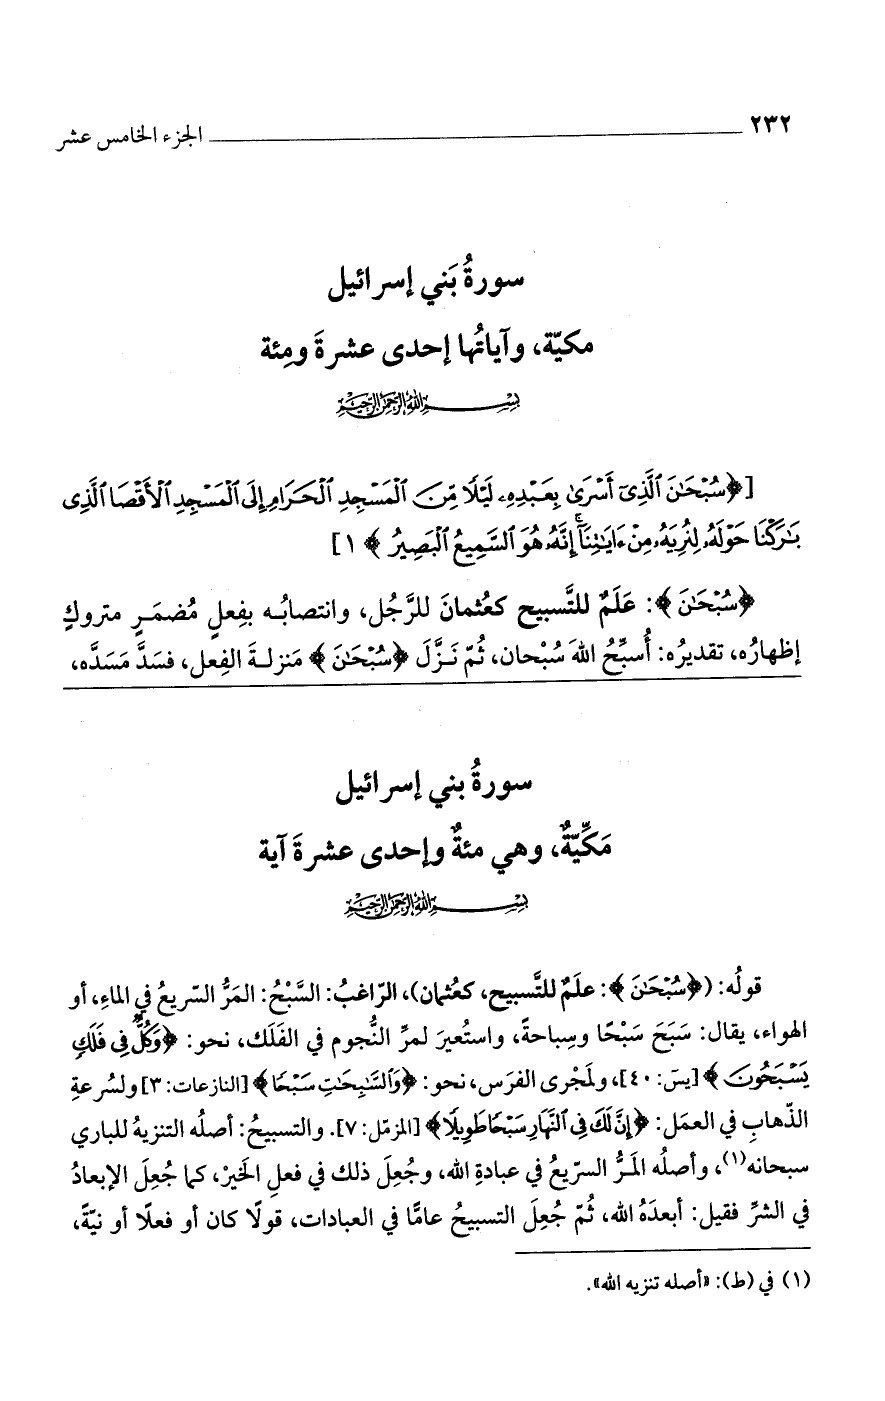 ٢٣٢ الجزء الخامس عشر
سورةُ بَني إسرائيل
مكيّة، وآياتُها إحدى عشرةَ ومِئة
بِسْمِ اللهِ الرَّحْمَنِ الرَّحِيمِ
[﴿سُبْحَٰنَ ٱلَّذِىٓ أَسْرَىٰ بِعَبْدِهِۦ لَيْلًا مِّنَ ٱلْمَسْجِدِ ٱلْحَرَامِ إِلَى ٱلْمَسْجِدِ ٱلْأَقْصَا ٱلَّذِى
بَٰرَكْنَا حَوْلَهُۥ لِنُرِيَهُۥ مِنْ ءَايَٰتِنَآ ۚ إِنَّهُۥ هُوَ ٱلسَّمِيعُ ٱلْبَصِيرُ﴾ ١]
﴿سُبْحَٰنَ﴾: عَلَمٌ للتَّسبيح كعُثمانَ للرَّجُل، وانتصابُه بفِعلٍ مُضمَرٍ متروكٍ
إظهارُه، تقديرُه: أُسبِّحُ اللهَ سُبْحان، ثُمّ نَزَّلَ ﴿سُبْحَٰنَ﴾ مَنزلةَ الفِعل، فسَدَّ مَسَدَّه،
سورةُ بني إسرائيل
مَكِّيّةٌ، وهي مئةٌ وإحدى عشرةَ آية
بِسْمِ اللهِ الرَّحْمَنِ الرَّحِيمِ
قولُه: (﴿سُبْحَٰنَ﴾: علَمٌ للتَّسبيح، كعُثمان)، الرّاغبُ: السَّبْحُ: المَرُّ السّريعُ في الماءِ، أو
الهواء، يقال: سَبَحَ سَبْحًا وسِباحةً، واستُعيرَ لمرِّ النُّجوم في الفَلَك، نحو: ﴿وَكُلٌّ فِى فَلَكٍ
يَسْبَحُونَ﴾ [يسَ: ٤٠]، ولمَجْرى الفرَس، نحو: ﴿وَٱلسَّٰبِحَٰتِ سَبْحًا﴾ [النازعات: ٣] ولسُرعةِ
الذّهابِ في العمَل: ﴿إِنَّ لَكَ فِى ٱلنَّهَارِ سَبْحًا طَوِيلًا﴾ [المزمّل: ٧]. والتسبيحُ: أصلُه التنزيهُ للباري
سبحانه(١)، وأصلُه المَرُّ السّريعُ في عبادةِ الله، وجُعِلَ ذلك في فعلِ الخَيرْ، كما جُعِلَ الإبعادُ
في الشرِّ فقيل: أبعدَهُ الله، ثُمّ جُعِلَ التسبيحُ عامًّا في العبادات، قولًا كان أو فعلًا أو نيّةً،
(١) في (ط): «أصله تنزيه الله».